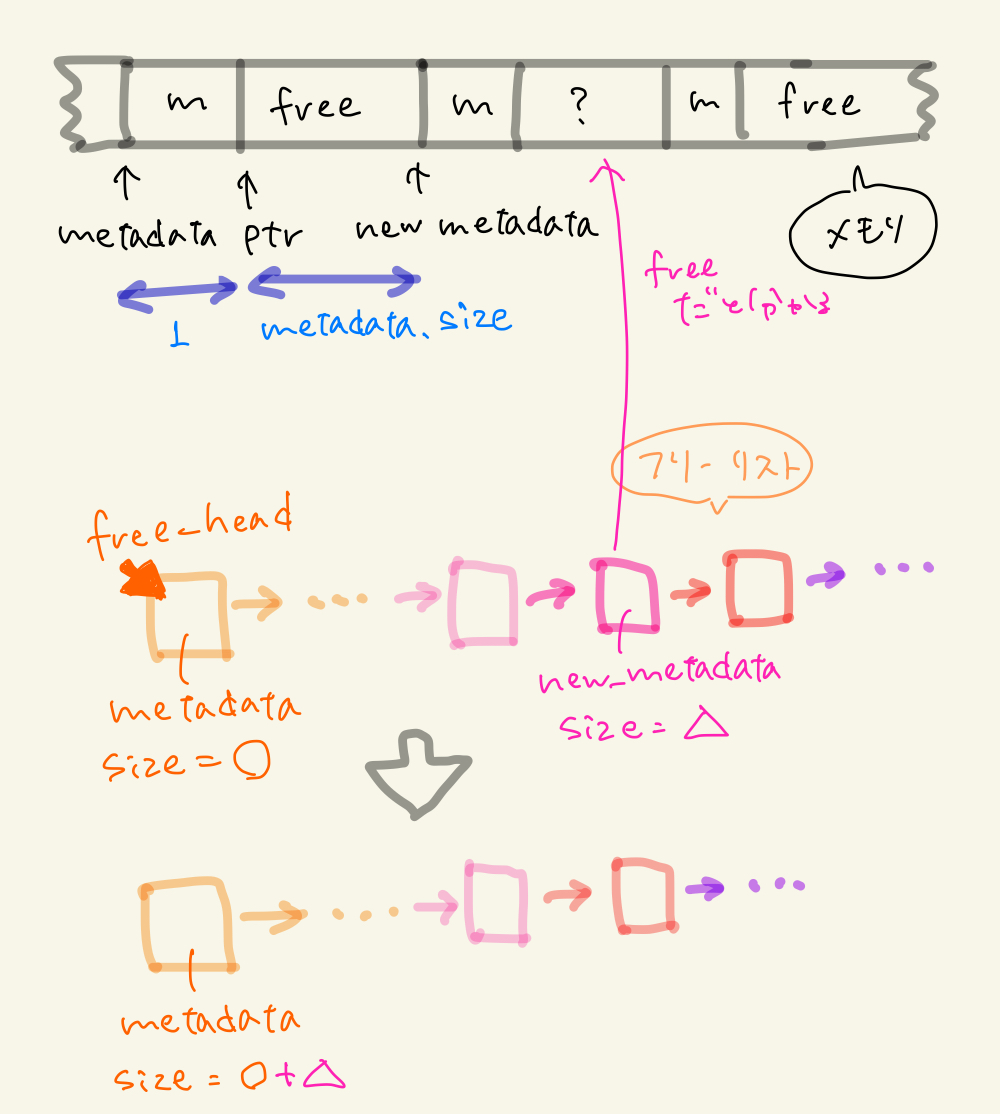 m free m ? m free
metadata ptr new metadata
メモリ
1 metadata.size
free
だと仮定
フリーリスト
free_head
metadata
size = ○
new_metadata
size = △
metadata
size = ○+△